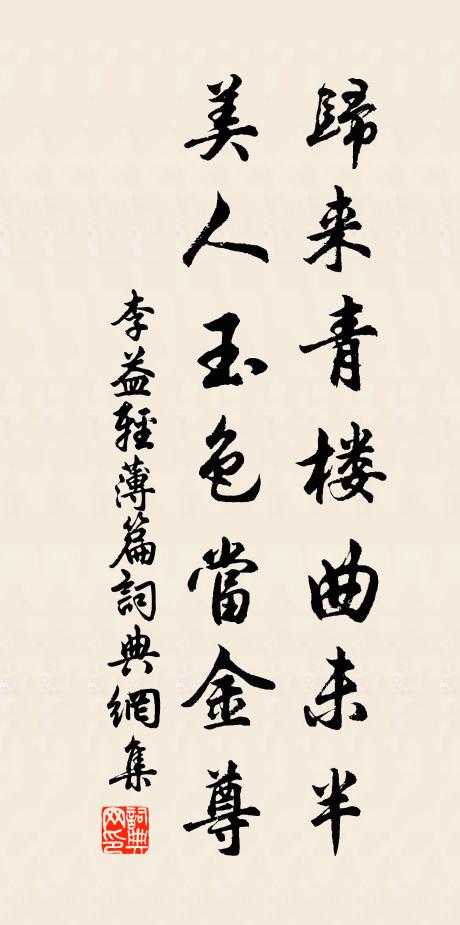 歸来青楼曲未半
美人玉色當金尊
李益輕薄篇詞典網集
詞典
网印